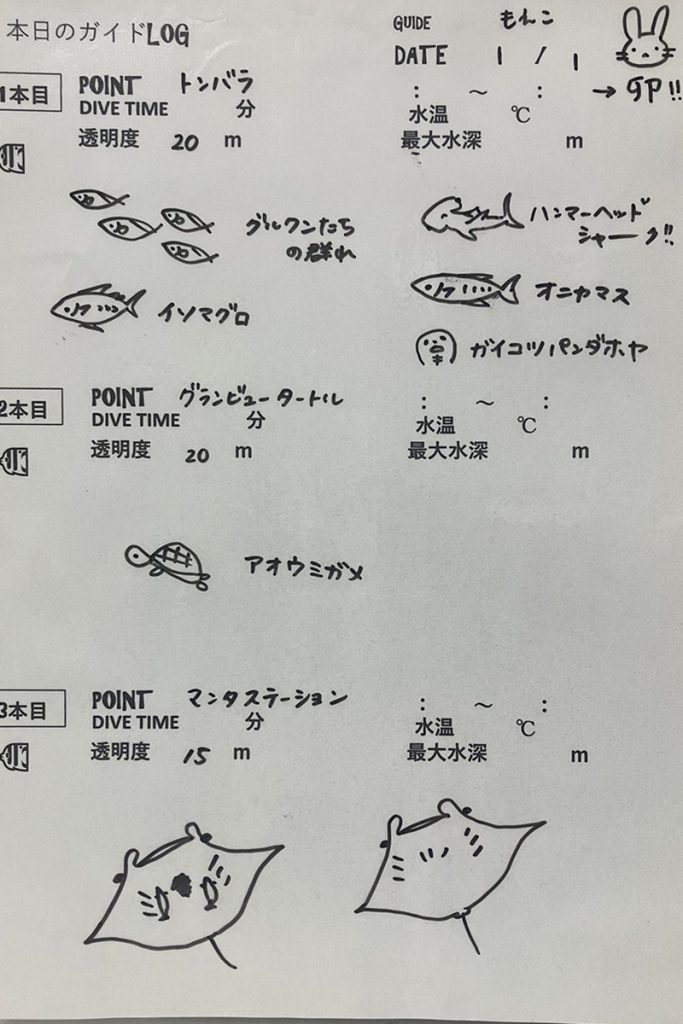 本日のガイドLOG
GUIDE もんこ
DATE 1 / 1
→ gP!!
1本目 POINT トンバラ : ～ :
DIVE TIME 分 水温 ℃
透明度 20 m 最大水深 m
グルクンたち
の群れ
ハンマーヘッド
シャーク!!
イソマグロ
オニカマス
ガイコツパンダホヤ
2本目 POINT グランビュータートル : ～ :
DIVE TIME 分 水温 ℃
透明度 20 m 最大水深 m
アオウミガメ
3本目 POINT マンタステーション : ～ :
DIVE TIME 分 水温 ℃
透明度 15 m 最大水深 m